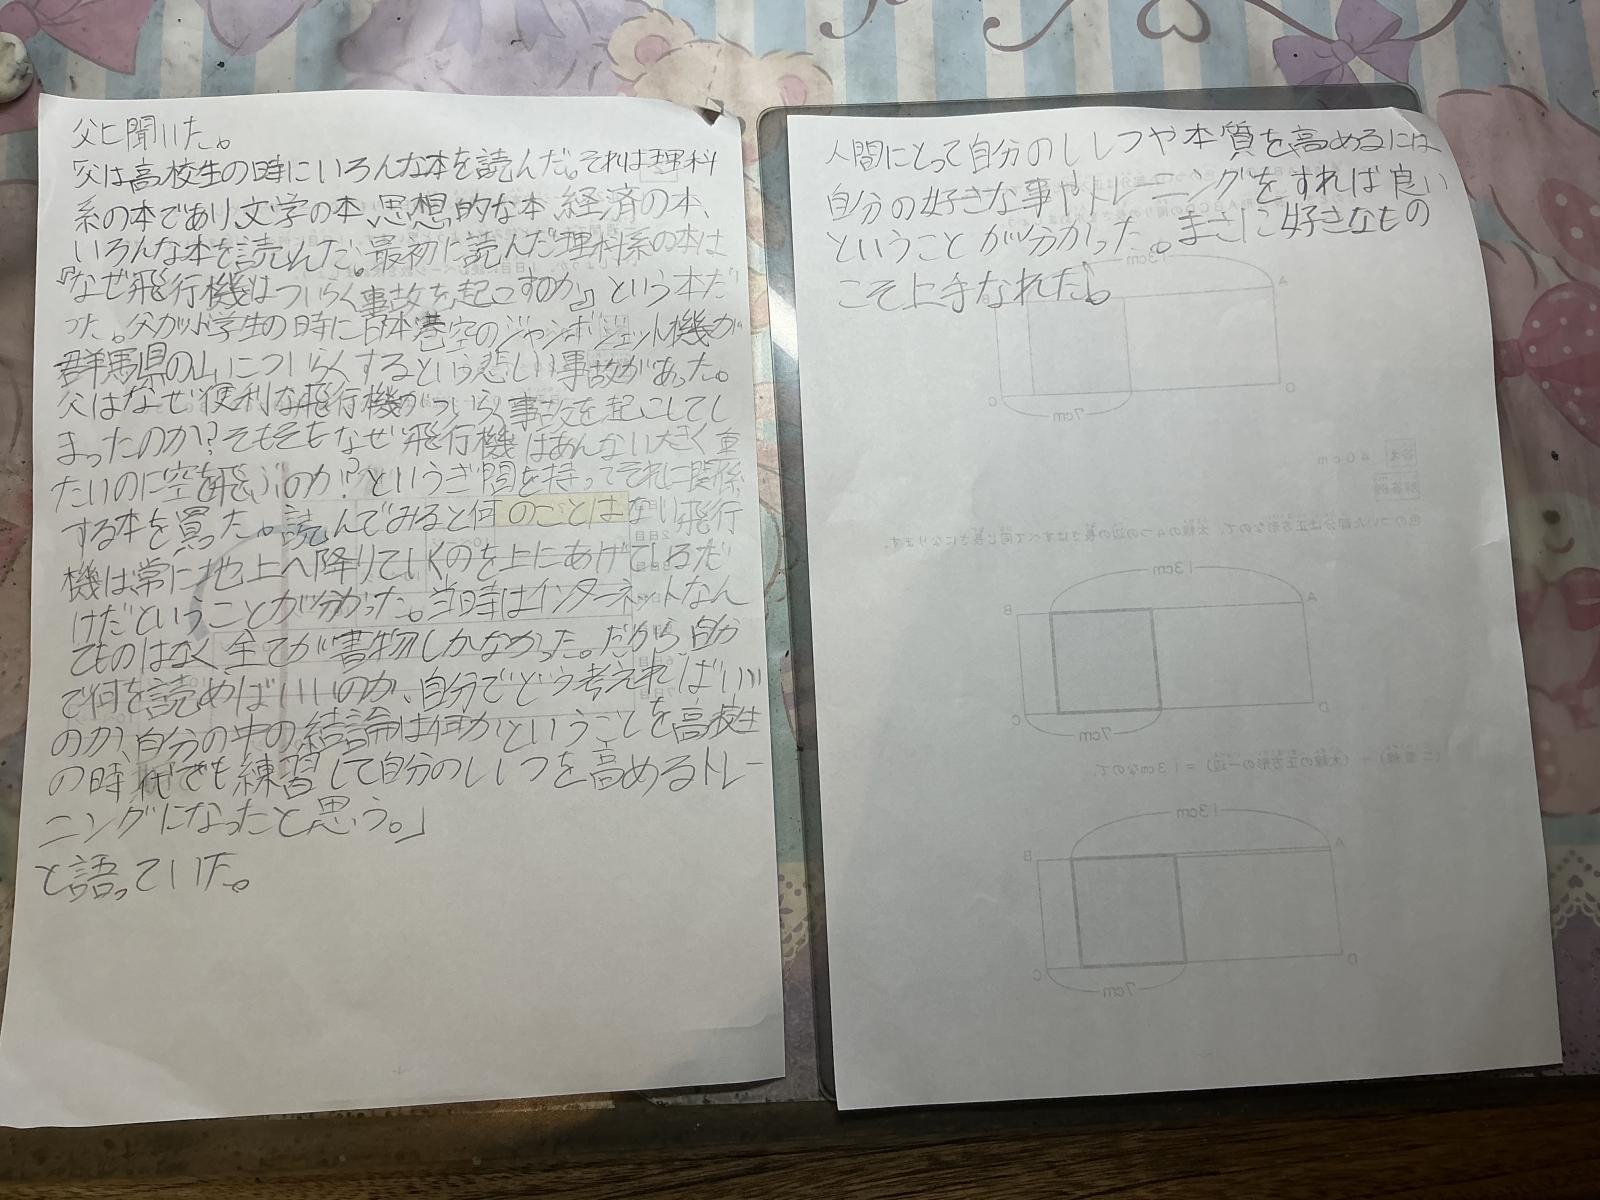 父に聞いた。
「父は高校生の時にいろんな本を読んだ。それは理科
系の本であり、文学の本、思想的な本、経済の本、
いろんな本を読んだ。最初に読んだ理科系の本は
『なぜ飛行機はついらく事故を起こすのか』という本だ
った。父が小学生の時に日本巷空のジャンボジェット機が
群馬県の山についらくするという悲しい事故があった。
父はなぜ便利な飛行機がついらく事故を起こしてし
まったのか?そもそもなぜ飛行機はあんない大きく重
たいのに空を飛ぶのか?というぎ問を持ってそれに関係
する本を買った。読んでみると何のことはない飛行
機は常に地上へ降りていくのを上にあげているだ
けだということが分かった。当時はインターネットなん
てものはなく全てが書物しかなかった。だから、自分
で何を読めばいいのか、自分でどう考えればいい
のか、自分の中の結論は何かということを高校生
の時代でも練習して自分のしつを高めるトレー
ニングになったと思う。」
と語っていた。
人間にとって自分のししつや本質を高めるには
自分の好きな事やトレーニングをすれば良い
ということが分かった。まさに「好きなもの
こそ上手なれだ」。
13cm
A
B
D
C
7cm
答え 40cm
解答例
色のついた部分は正方形なので、太線の4つの辺の長さはすべて同じ長さになります。
13cm
B
A
C
D
7cm
(二重線)+(太線の正方形の一辺)=13cmなので、
13cm
B
A
C
D
7cm